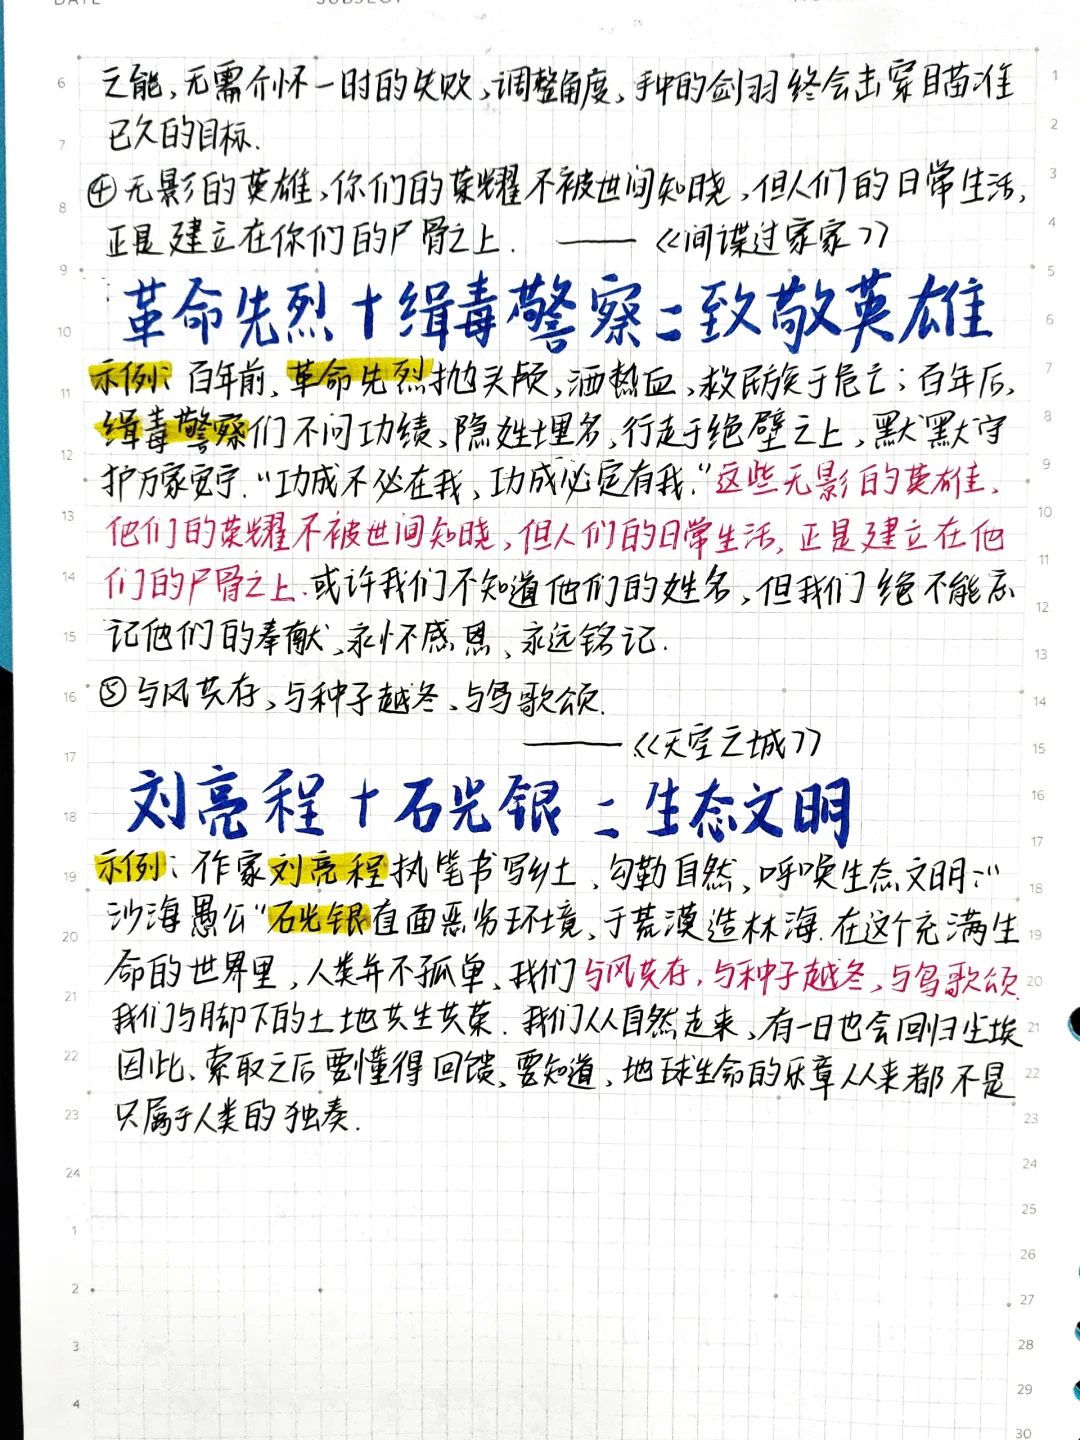 之能、无需介怀一时的失败、调整角度、手中的剑羽终会击穿瞄准
已久的目标.
④无影的英雄,你们的荣耀不被世间知晓,但人们的日常生活,
正是建立在你们的尸骨之上. ——《间谍过家家》
革命先烈+缉毒警察=致敬英雄
示例:百年前,革命先烈抛头颅,洒热血,救民族于危亡;百年后,
缉毒警察们不问功绩,隐姓埋名,行走于绝壁之上,默默守
护万家安宁."功成不必在我,功成必定有我."这些无影的英雄,
他们的荣耀不被世间知晓,但人们的日常生活,正是建立在他
们的尸骨之上.或许我们不知道他们的姓名,但我们绝不能忘
记他们的奉献、永怀感恩、永远铭记.
⑤与风共存,与种子越冬、与鸟歌颂.
——《天空之城》
刘亮程+石光银=生态文明
示例:作家刘亮程执笔书写乡土、勾勒自然,呼唤生态文明;"
沙海愚公"石光银直面恶劣环境,于荒漠造林海.在这个充满生
命的世界里,人类并不孤单、我们与风共存,与种子越冬,与鸟歌颂.
我们与脚下的土地共生共荣.我们从自然走来,有一日也会回归尘埃
因此、索取之后要懂得回馈、要知道,地球生命的乐章从来都不是
只属于人类的独奏.
DATE
SUBJECT
6
7
8
9
10
11
12
13
14
15
16
17
18
19
20
21
22
23
24
1
2
3
4
1
2
3
4
5
6
7
8
9
10
11
12
13
14
15
16
17
18
19
20
21
22
23
24
25
26
27
28
29
30